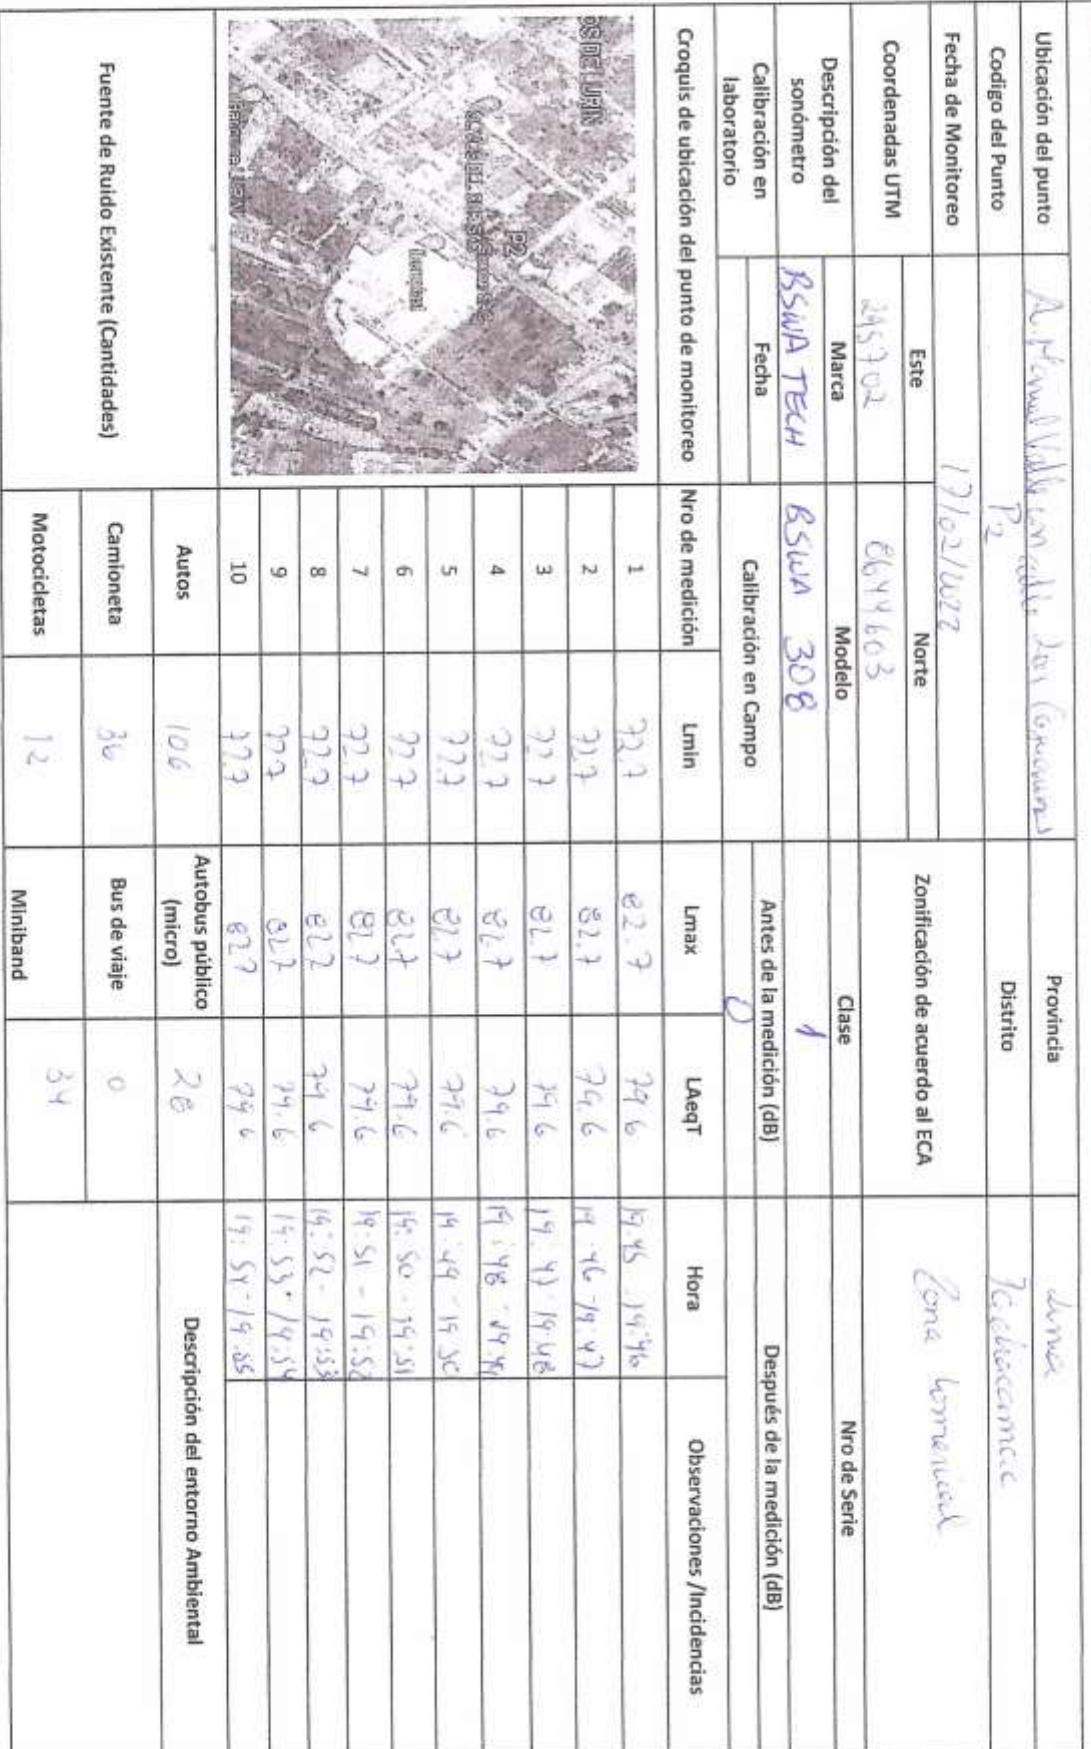 Ubicación del punto Provincia Lima
Codigo del Punto P2 Distrito
Fecha de Monitoreo 17/02/2022 Zonificación de acuerdo al ECA Zona
Coordenadas UTM Este Norte
295702 8644603
Descripción del sonómetro Marca Modelo Clase Nro de Serie
BSWA TECH BSWA 308 1
Calibración en laboratorio Fecha Calibración en Campo Antes de la medición (dB) Después de la medición (dB)
0
Croquis de ubicación del punto de monitoreo Nro de medición Lmin Lmax LAeqT Hora Observaciones /Incidencias
OS DE LURIN
P2
1 72.7 82.7 79.6 19:45 - 19:46
2 72.7 82.7 79.6 19:46 - 19:47
3 72.7 82.7 79.6 19:47 - 19:48
4 72.7 82.7 79.6 19:48 - 19:49
5 72.7 82.7 79.6 19:49 - 19:50
6 72.7 82.7 79.6 19:50 - 19:51
7 72.7 82.7 79.6 19:51 - 19:52
8 72.7 82.7 79.6 19:52 - 19:53
9 72.7 82.7 79.6 19:53 - 19:54
10 72.7 82.7 79.6 19:54 - 19:55
Fuente de Ruido Existente (Cantidades) Autos 106 Autobus público (micro) 28 Descripción del entorno Ambiental
Camioneta 36 Bus de viaje 0
Motocicletas 12 Miniband 34